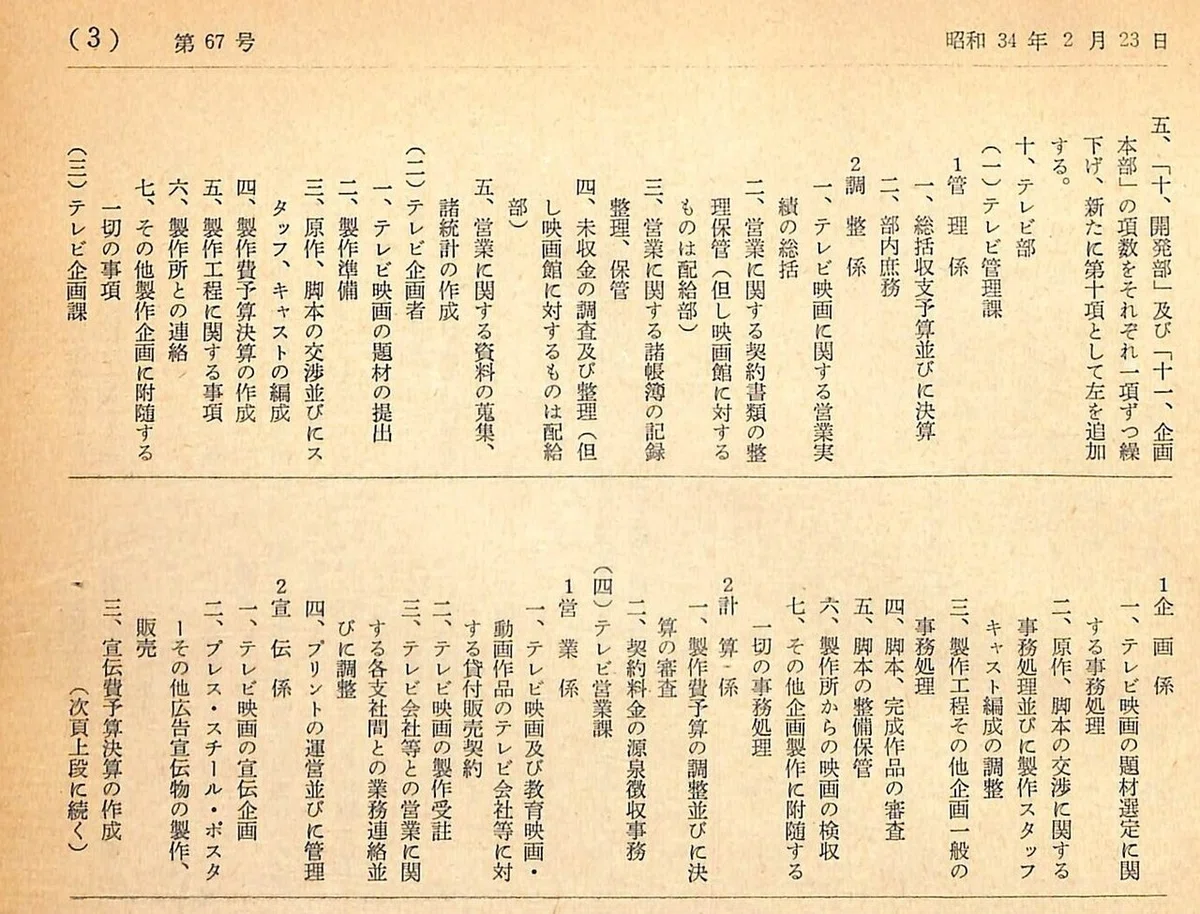 (3)　第 67 号　昭和 34 年 2 月 23 日
五、「十、開発部」及び「十一、企画
本部」の項数をそれぞれ一項ずつ繰
下げ、新たに第十項として左を追加
する。
十、テレビ部
(一)テレビ管理課
1管　理　係
一、総括収支予算並びに決算
二、部内庶務
2調　整　係
一、テレビ映画に関する営業実
績の総括
二、営業に関する契約書類の整
理保管（但し映画館に対する
ものは配給部）
三、営業に関する諸帳簿の記録
整理、保管
四、未収金の調査及び整理（但
し映画館に対するものは配給
部）
五、営業に関する資料の蒐集、
諸統計の作成
(二)テレビ企画者
一、テレビ映画の題材の提出
二、製作準備
三、原作、脚本の交渉並びにス
タッフ、キャストの編成
四、製作費予算決算の作成
五、製作工程に関する事項
六、製作所との連絡
七、その他製作企画に附随する
一切の事項
(三)テレビ企画課
1企　画　係
一、テレビ映画の題材選定に関
する事務処理
二、原作、脚本の交渉に関する
事務処理並びに製作スタッフ
キャスト編成の調整
三、製作工程その他企画一般の
事務処理
四、脚本、完成作品の審査
五、脚本の整備保管
六、製作所からの映画の検収
七、その他企画製作に附随する
一切の事務処理
2計　算　係
一、製作費予算の調整並びに決
算の審査
二、契約料金の源泉徴収事務
(四)テレビ営業課
1営　業　係
一、テレビ映画及び教育映画・
動画作品のテレビ会社等に対
する貸付販売契約
二、テレビ映画の製作受註
三、テレビ会社等との営業に関
する各支社間との業務連絡並
びに調整
四、プリントの運営並びに管理
2宣　伝　係
一、テレビ映画の宣伝企画
二、プレス・スチール・ポスタ
ーその他広告宣伝物の製作、
販売
三、宣伝費予算決算の作成
（次頁上段に続く）